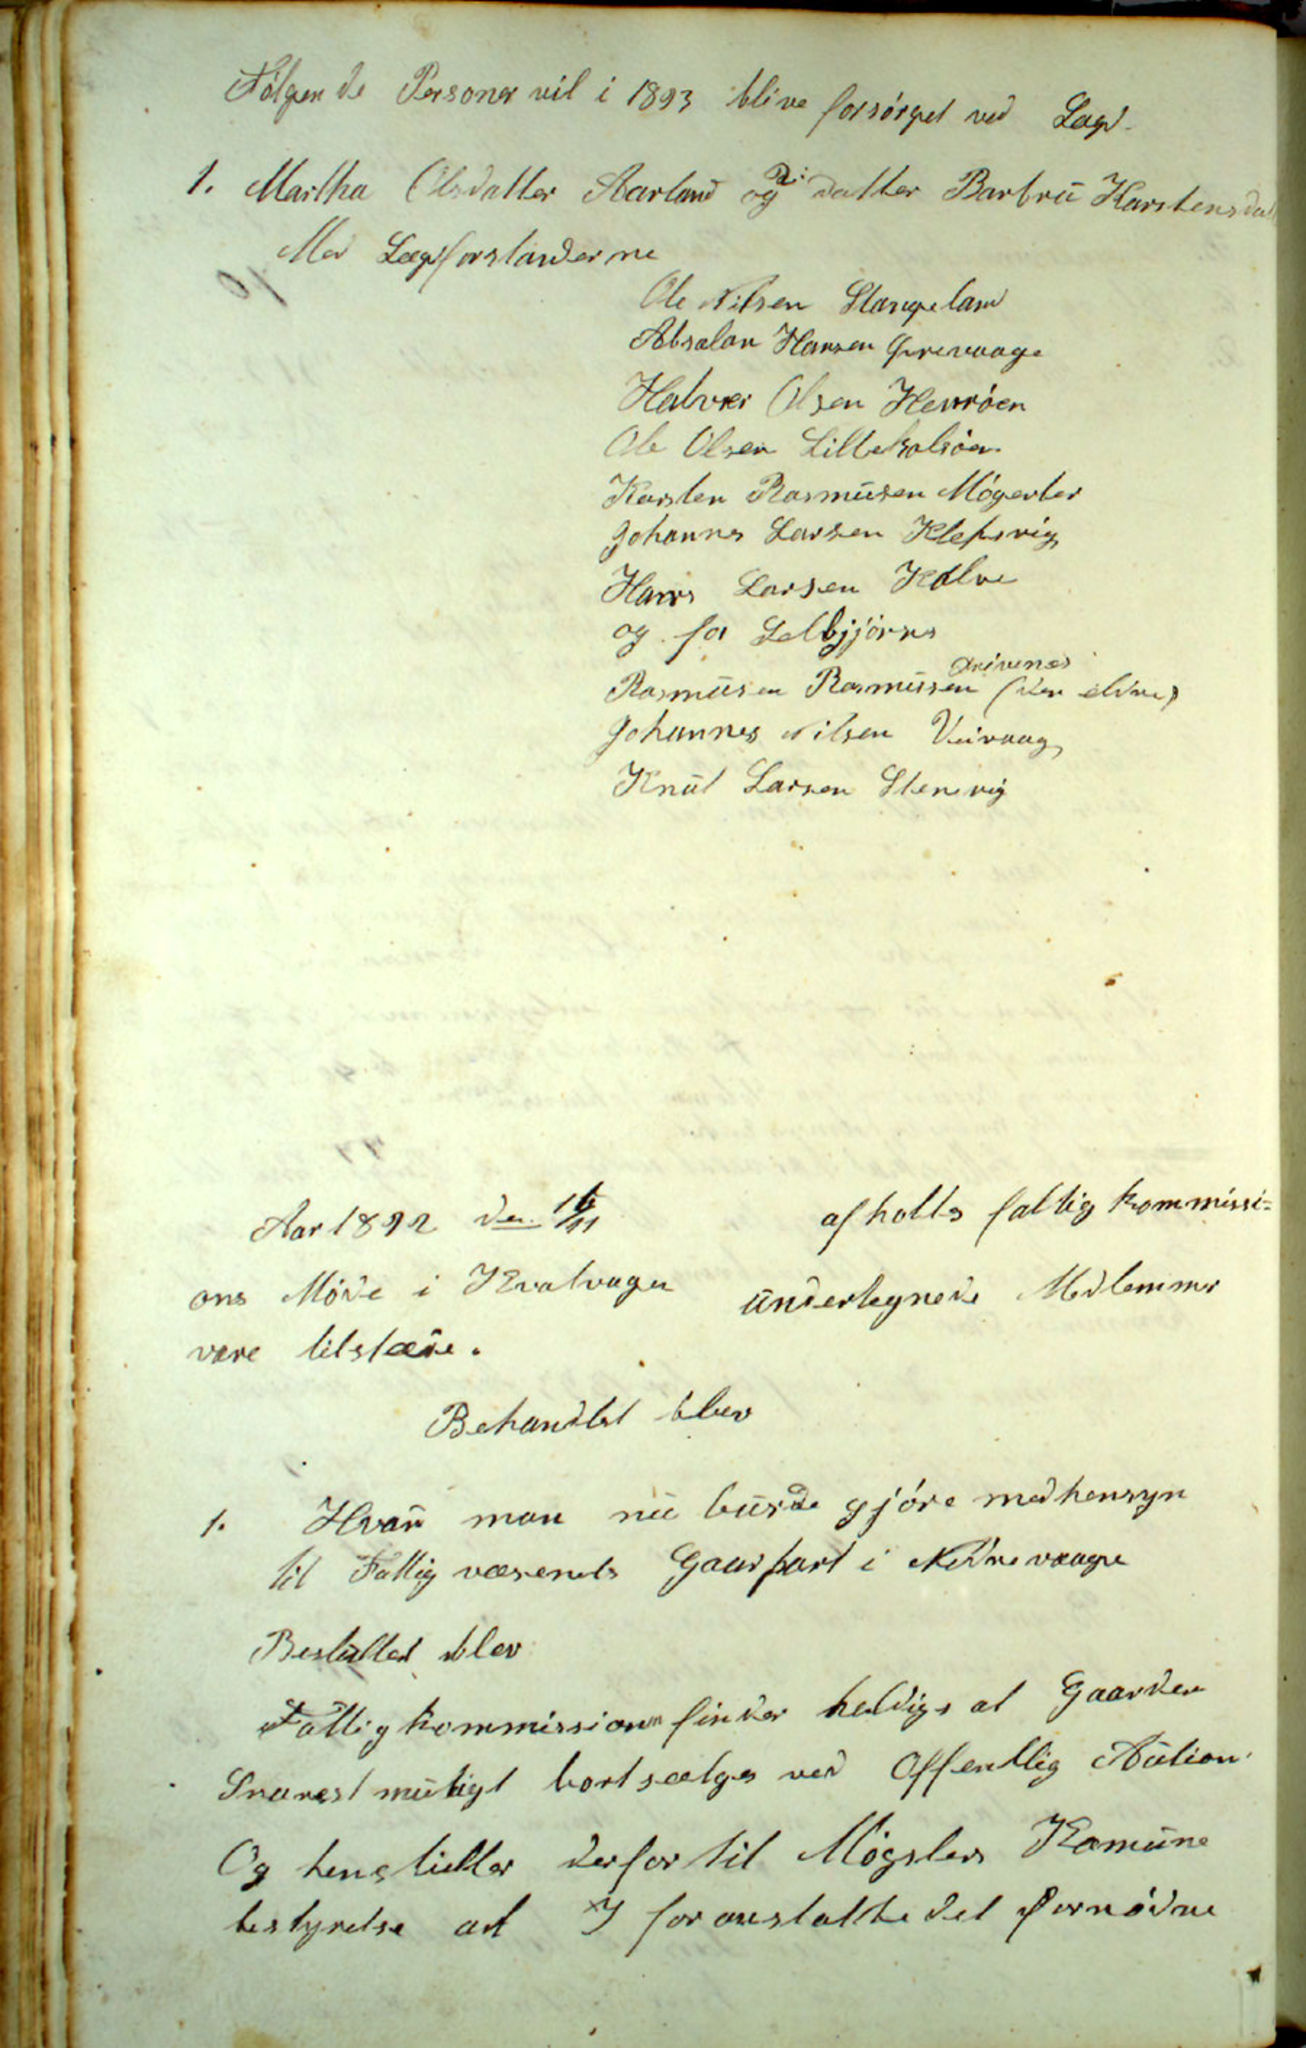 Følgende Personer vil i 1893 blive forsørget ved Lægd.
1. Martha Olsdatter Aarland og datter Barbru Karstensdat
Med Lægdforstanderne
Ole Nilsen Stangeland
Absalon Hansen Drevaage
Halvor Olsen Henrøen
Ole Olsen Lillekalsøen
Karsten Rasmusen Møgester
Johannes Larsen Klepsvig
Hans Larsen Kalve
og for Selbjjørns
Drivenes
Rasmusen Rasmussen (den eldre)
Johannes Nilsen Veivaag
Knut Larsen Stensvig
Aar 1892 den 16/11 afholts fattig kommissi=
ons Møde i Kvalvagen undertegnede Medlemmer
vare tilstæde.
Behandlet blev
1. Hvad man nu burde gjøre med hensyn
til Fattigvæsenets Gaardpart i Nedrevaage
Besluttet blev
Fattigkommissionen finder heldigs at Gaarden
Snarest muligt bortsælges ved Offentlig Aution.
Og henstieller derfor til Møgsters Komune
bestyrelse at I foranstaltte det fornødne